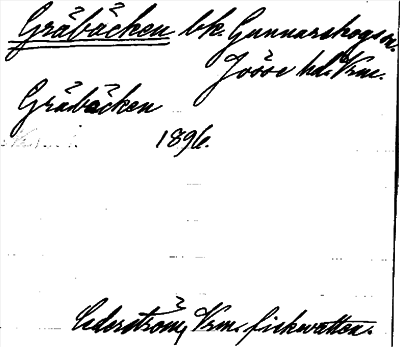 Gråbäcken bk. Gunnarskogs sn.
Jösse hd. Vrm.
Gråbäcken
1896.
Cederström, Vrm. fiskvatten.